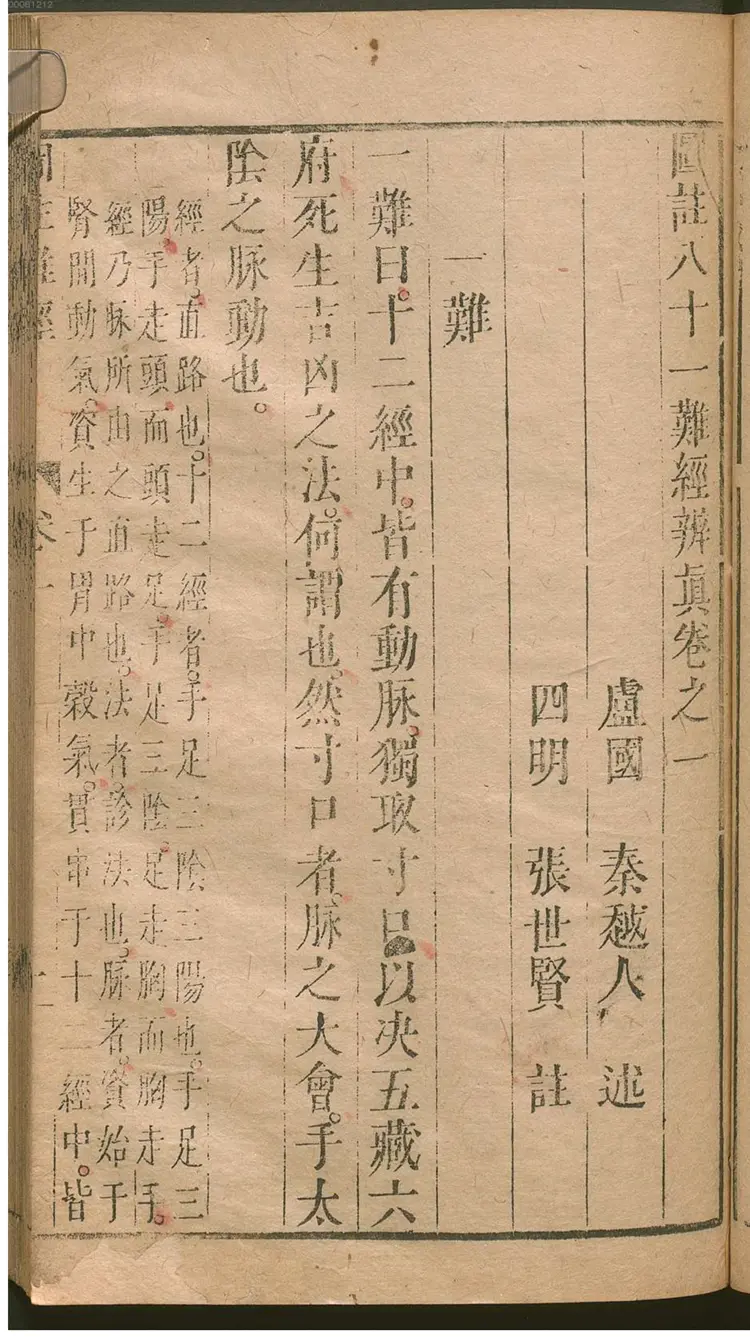 00061212
圖註八十一難經辨眞卷之一
盧國　秦越人　述
四明　張世賢　註
一難
一難曰。十二經中。皆有動脉。獨取寸口。以決五藏六
府死生吉凶之法。何謂也。然寸口者。脉之大會。手太
陰之脉動也。
經者。直路也。十二經者。手足三陰三陽也。手足三
陽。手走頭而頭走足。手足三陰。足走胸而胸走手。
經乃脉所由之直路也。法者。診法也。脉者。資始于
腎間動氣。資生于胃中穀氣。貫串于十二經中。皆
圖註難經　卷一